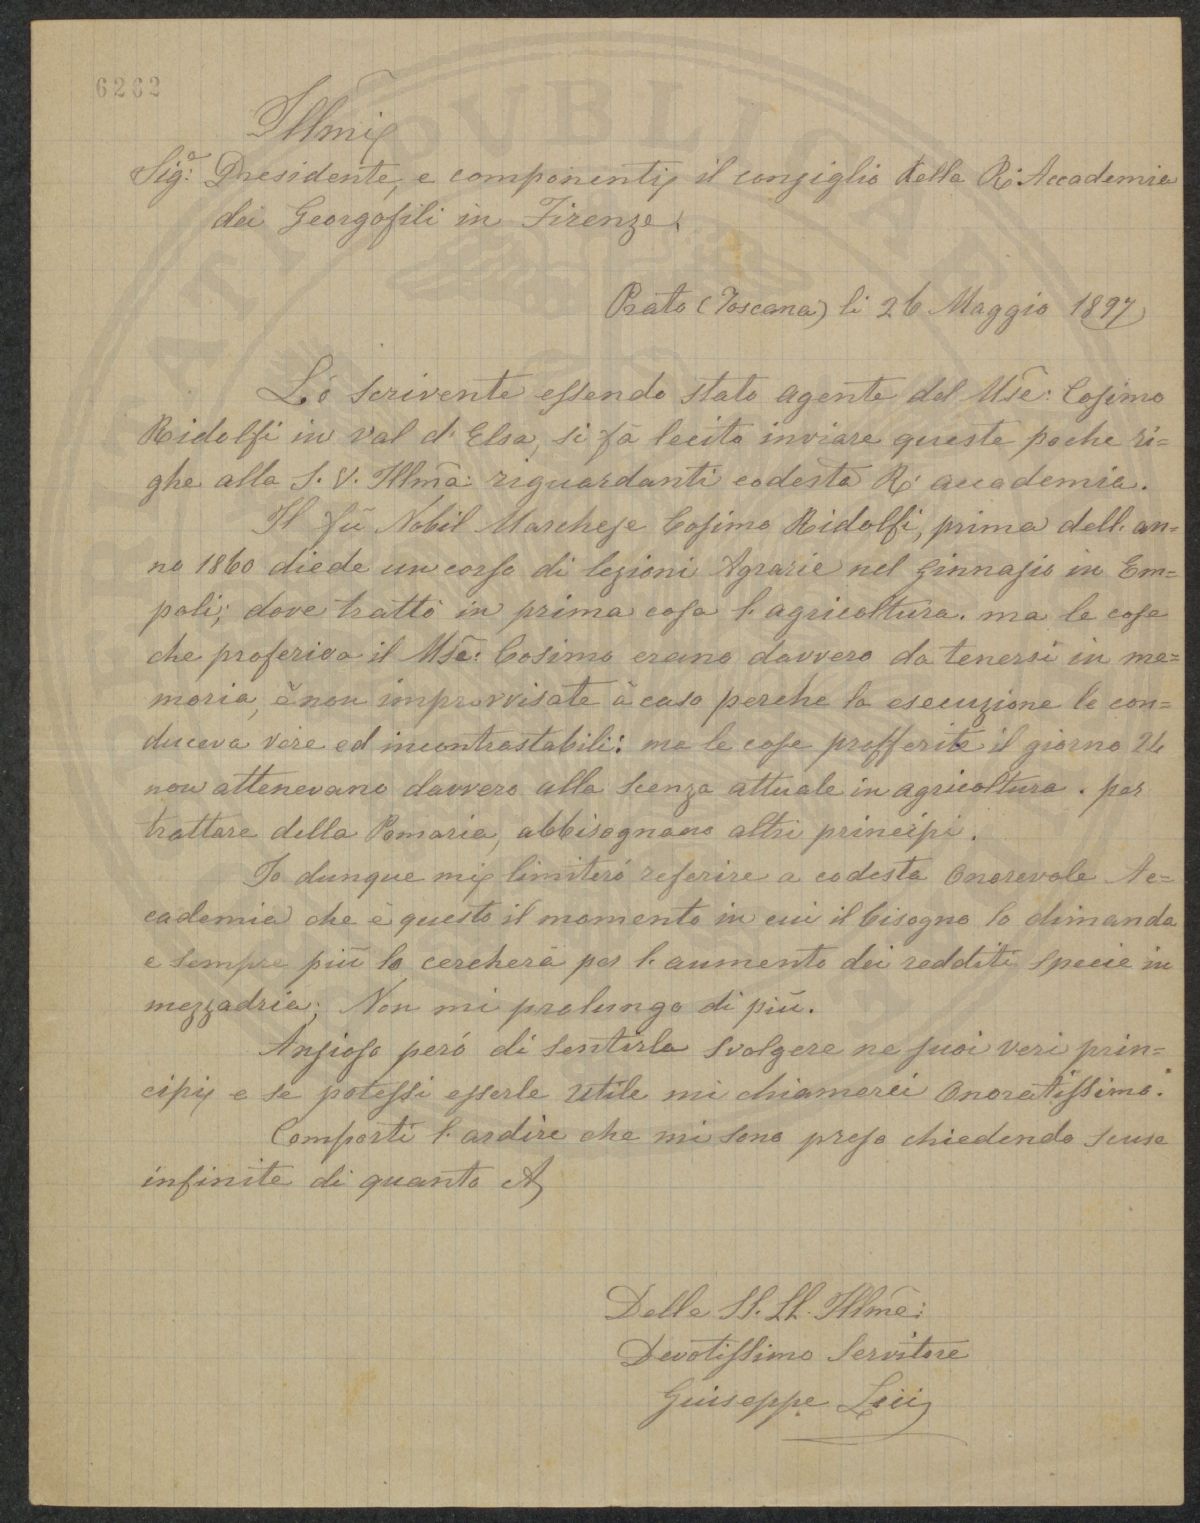 6262
Illmi
Sigᵃ: Presidente, e componenti il consiglio della R. Accademia
dei Georgofili in Firenze.
Prato (Toscana) li 26 Maggio 1897
Lo scrivente essendo stato agente del Mse: Cosimo
Ridolfi in val d'Elsa, si fà lecito inviare queste poche ri=
ghe alla S. V. Illma: riguardanti codesta R. accademia.
Il fù Nobil Marchese Cosimo Ridolfi, prima dell'an=
no 1860 diede un corso di lezioni Agrarie nel Ginnasio in Em=
poli; dove trattò in prima cosa l'agricoltura. ma le cose
che proferiva il Mse: Cosimo erano davvero da tenersi in me=
moria, è non improvvisate à caso perche la esecuzione le con=
duceva vere ed incontrastabili: ma le cose profferite il giorno 24
non attenevano davvero alla scenza attuale in agricoltura. per
trattare della Pomaria, abbisognano altri principi.
Io dunque mi limiterò referire a codesta Onorevole Ac=
cademia che è questo il momento in cui il bisogno lo dimanda
e sempre più lo cercherà per l'aumento dei redditi specie in
mezzadria; Non mi prolungo di più.
Ansioso però di sentirla svolgere ne suoi veri prin=
cipi e se potessi esserle utile mi chiamerei Onoratissimo.
Comporti l'ardire che mi sono preso chiedendo scuse
infinite di quanto
Delle SS. LL. Illme:
Devotissimo Servitore
Giuseppe